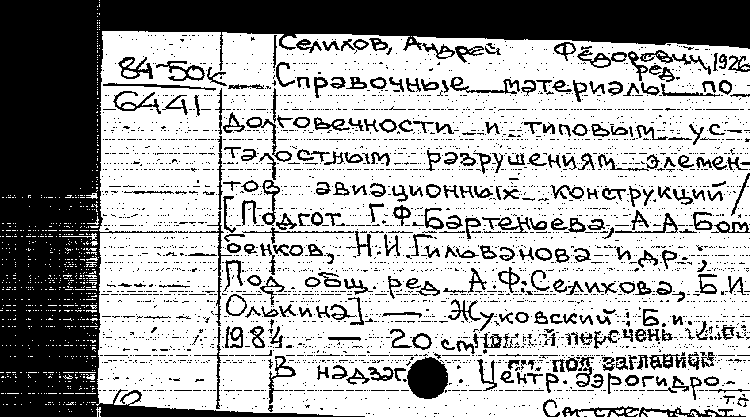 Селихов, Андрей Фёдорович, 1926
ред.
84-50к
6441
Справочные материалы по
долговечности и типовым ус-
талостным разрушениям элемен-
тов авиационных конструкций /
[Подгот. Г.Ф. Бартеньева, А.А. Бот
бенков, Н.И. Гильванова и др.;
Под общ. ред. А.Ф. Селихова, Б.И
Олькина]. — Жуковский: Б.и.
1984. — 20 см. перечень
В надзаг.: Центр. аэрогидро-
см. под заглавием
10